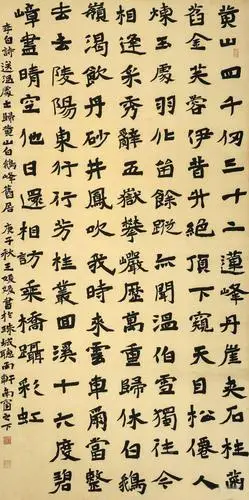 黃山四千仞三十二蓮峰丹崖夾石柱菡
萏金芙蓉伊昔升絕頂下窺天目松僊人
煉玉處羽化留餘蹤亦聞溫伯雪獨往今
相逢采秀辭五嶽攀巖歷萬重歸休白鵝
嶺渴飲丹砂井鳳吹我時來雲車爾當整
去去陵陽東行行芳桂叢回溪十六度碧
嶂盡晴空他日還相訪乘橋躡彩虹
李白詩送溫處士歸黃山白鵝峰舊居 庚子秋王書於珠城聽雨軒南窗之下